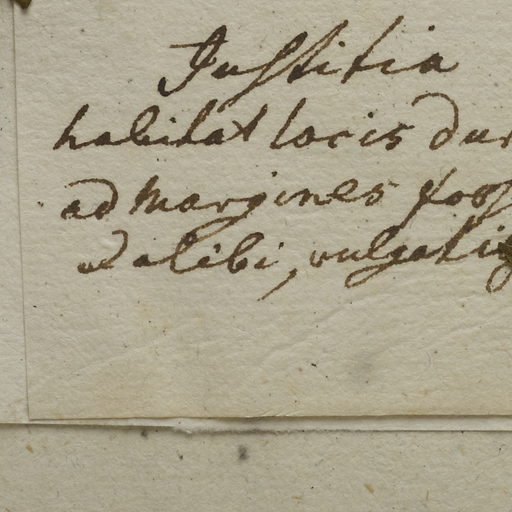 Justitia
habitat locis dur
ad margines foss
et alibi, vulgatis